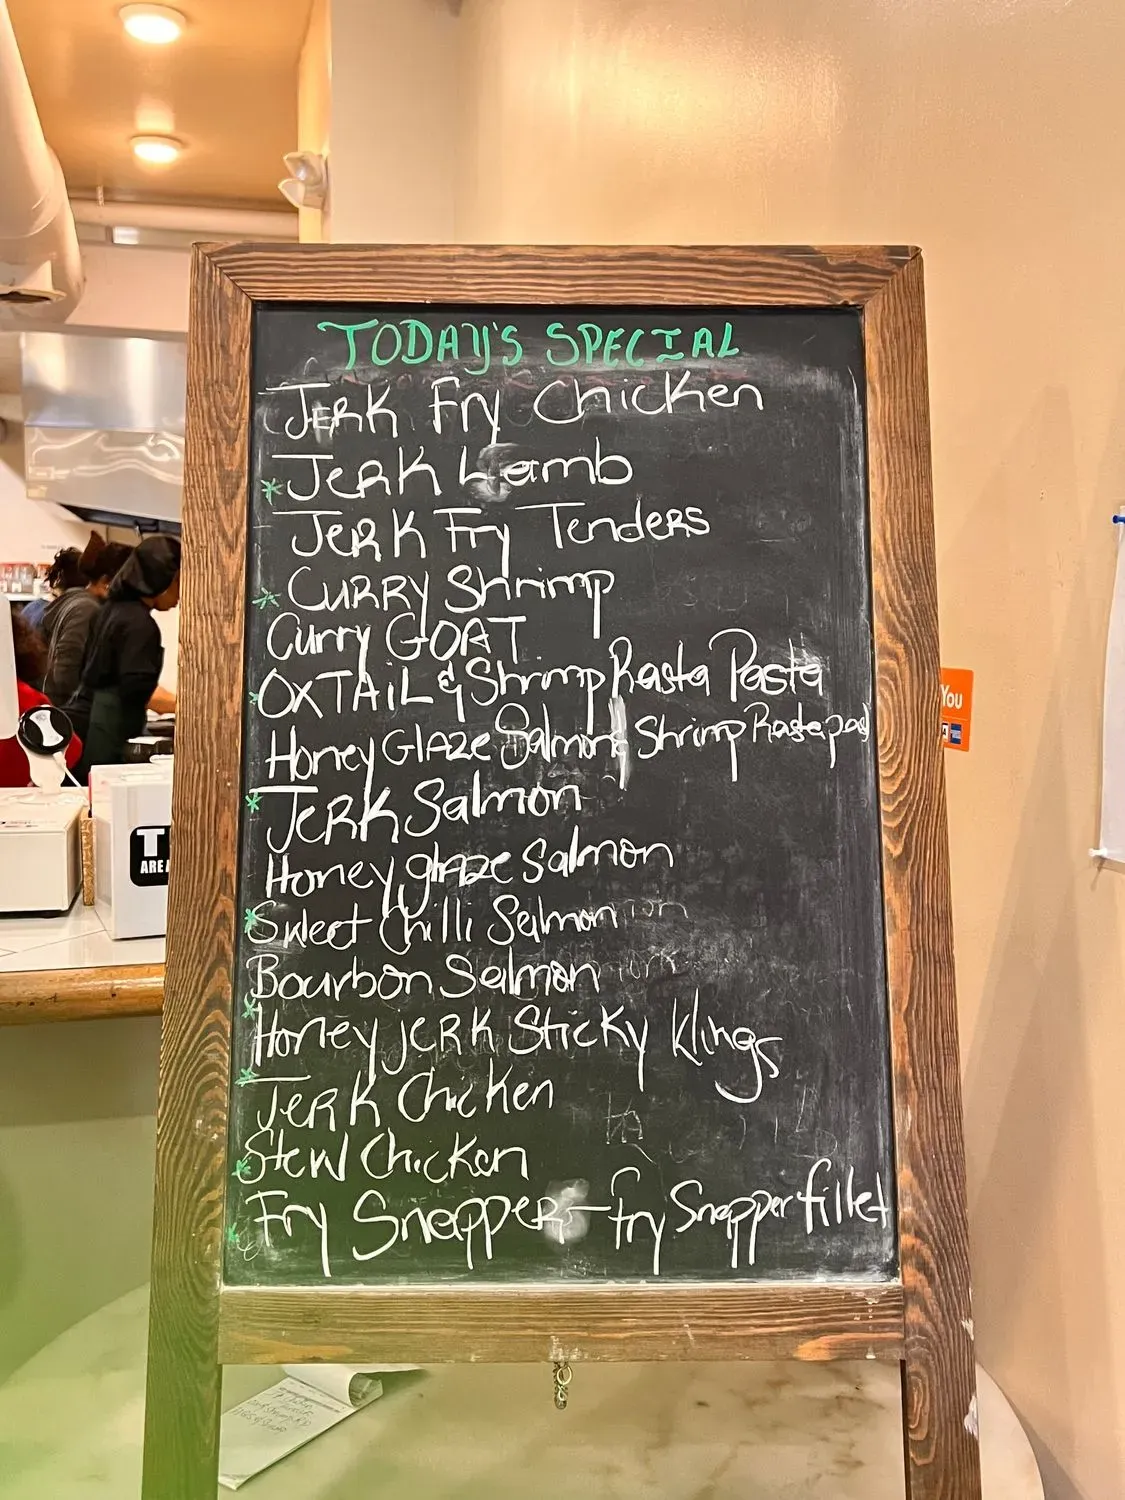 TODAY'S SPECIAL
JERK Fry Chicken
* JERK Lamb
JERK Fry Tenders
* CURRY Shrimp
Curry GOAT
* OXTAiL & Shrimp Rasta Pasta
Honey GLAZE Salmon & Shrimp Rasta past
* JERK Salmon
Honey glaze Salmon
* Sweet Chilli Salmon
Bourbon Salmon
* Honey jERK Sticky Wings
* JERK Chicken
* Stew Chicken
* Fry Snapper - fry Snapper fillet
You
AREA